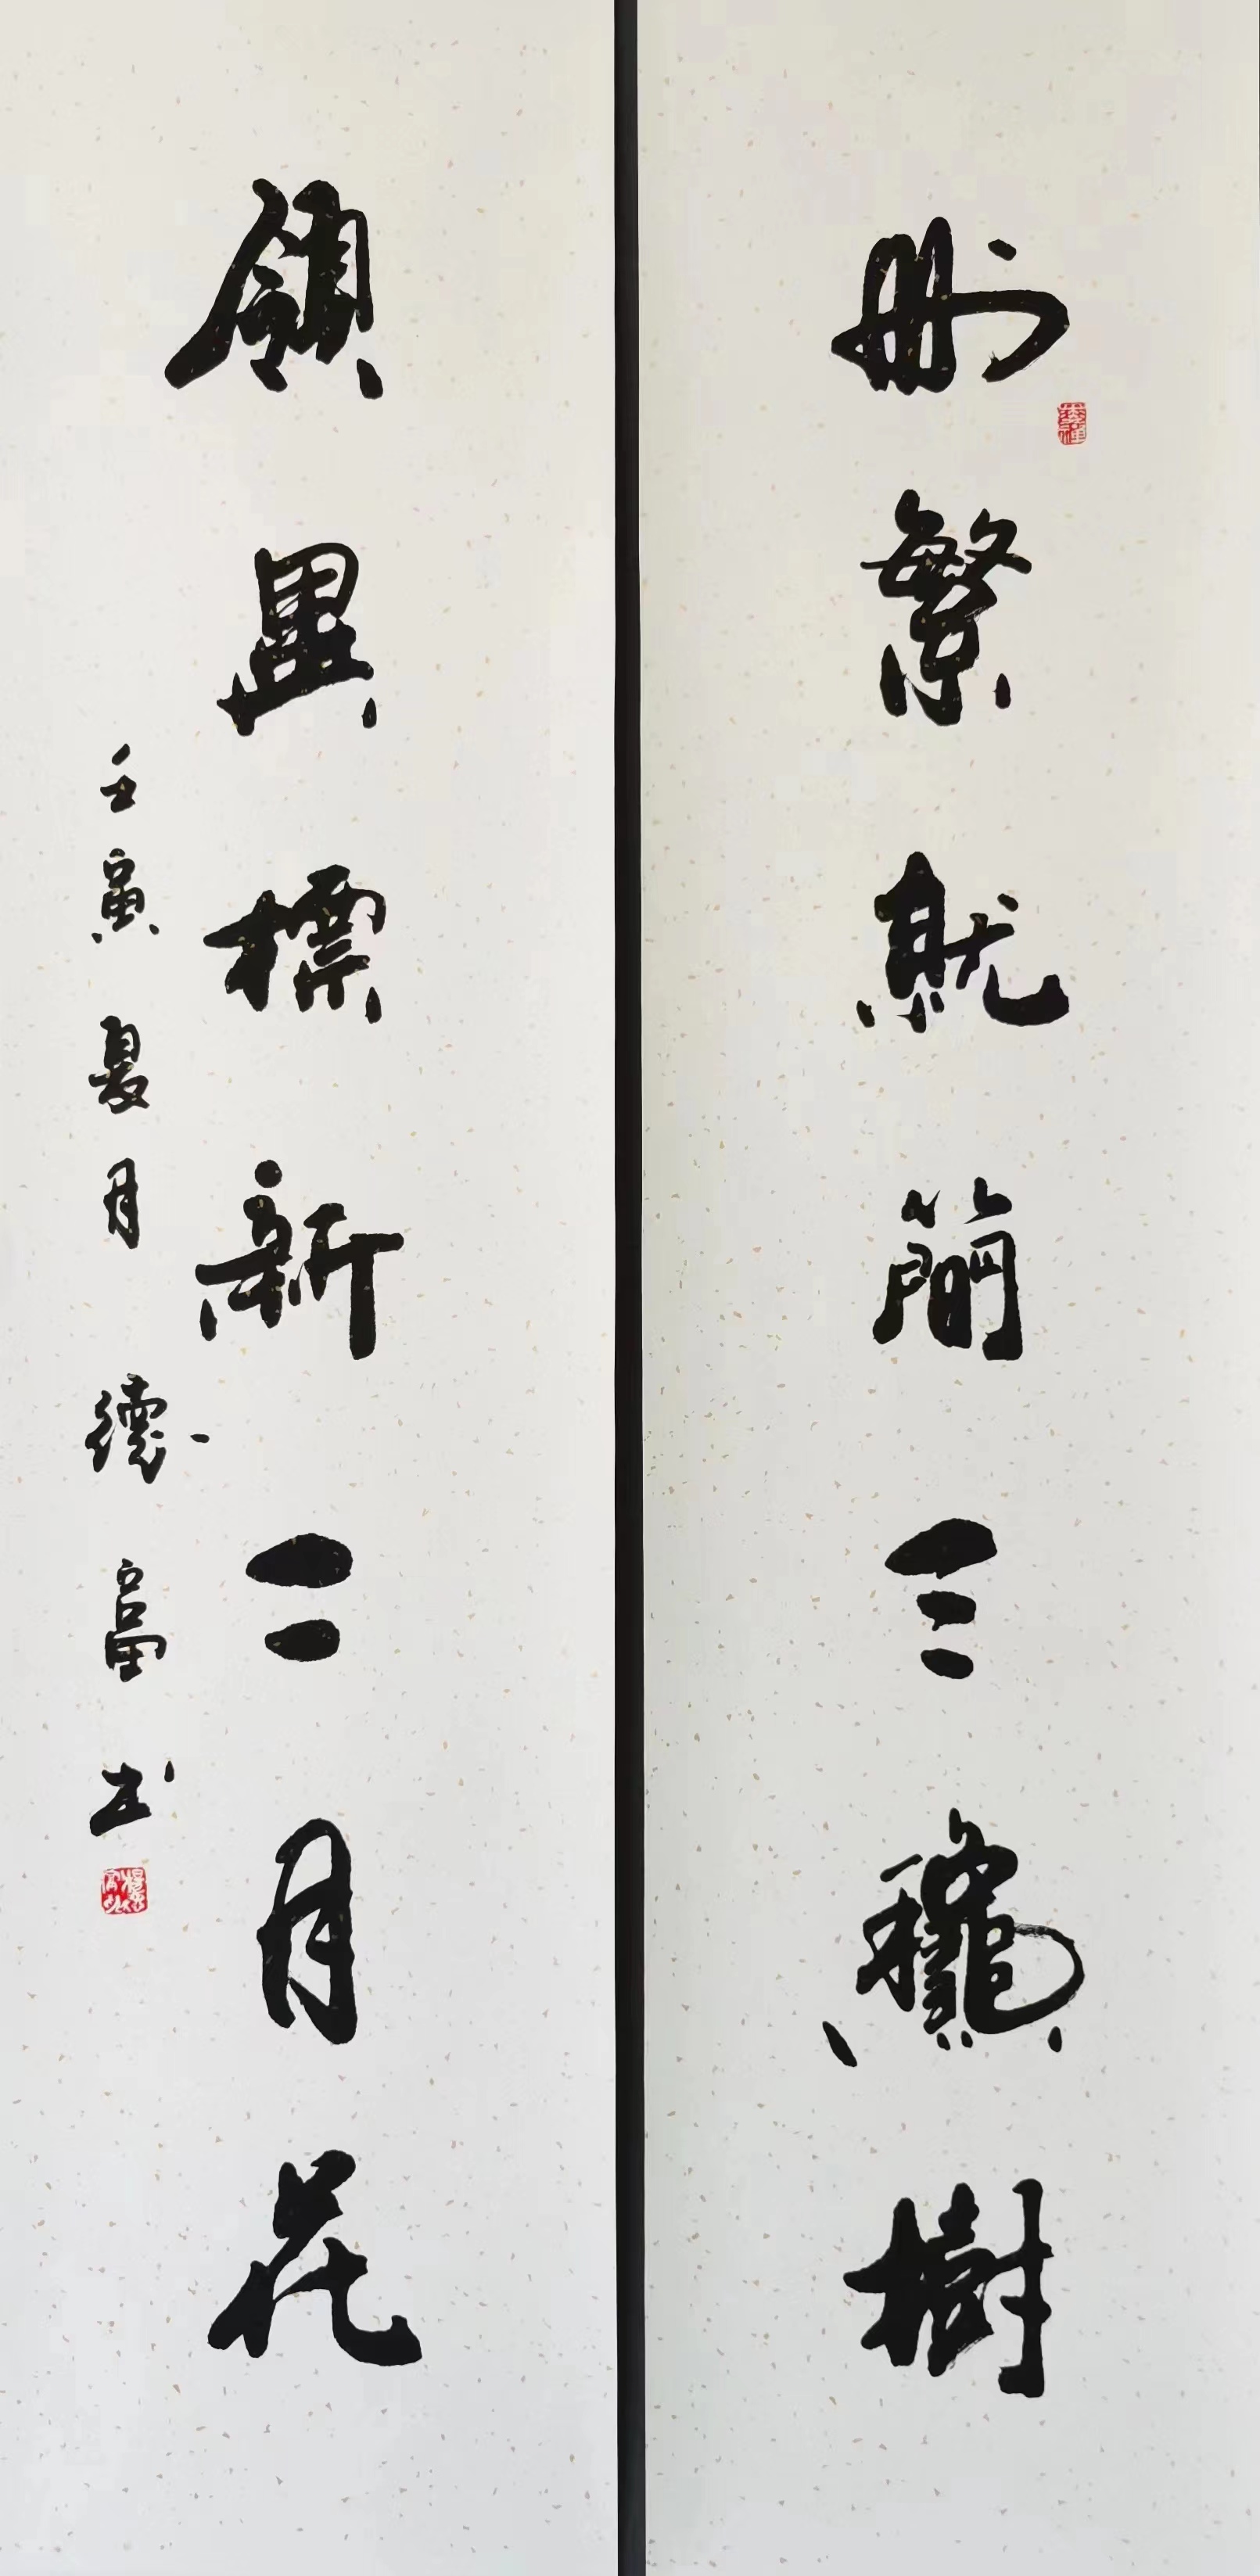 刪繁就簡三穐樹
領異標新二月花
壬寅夏月德富书